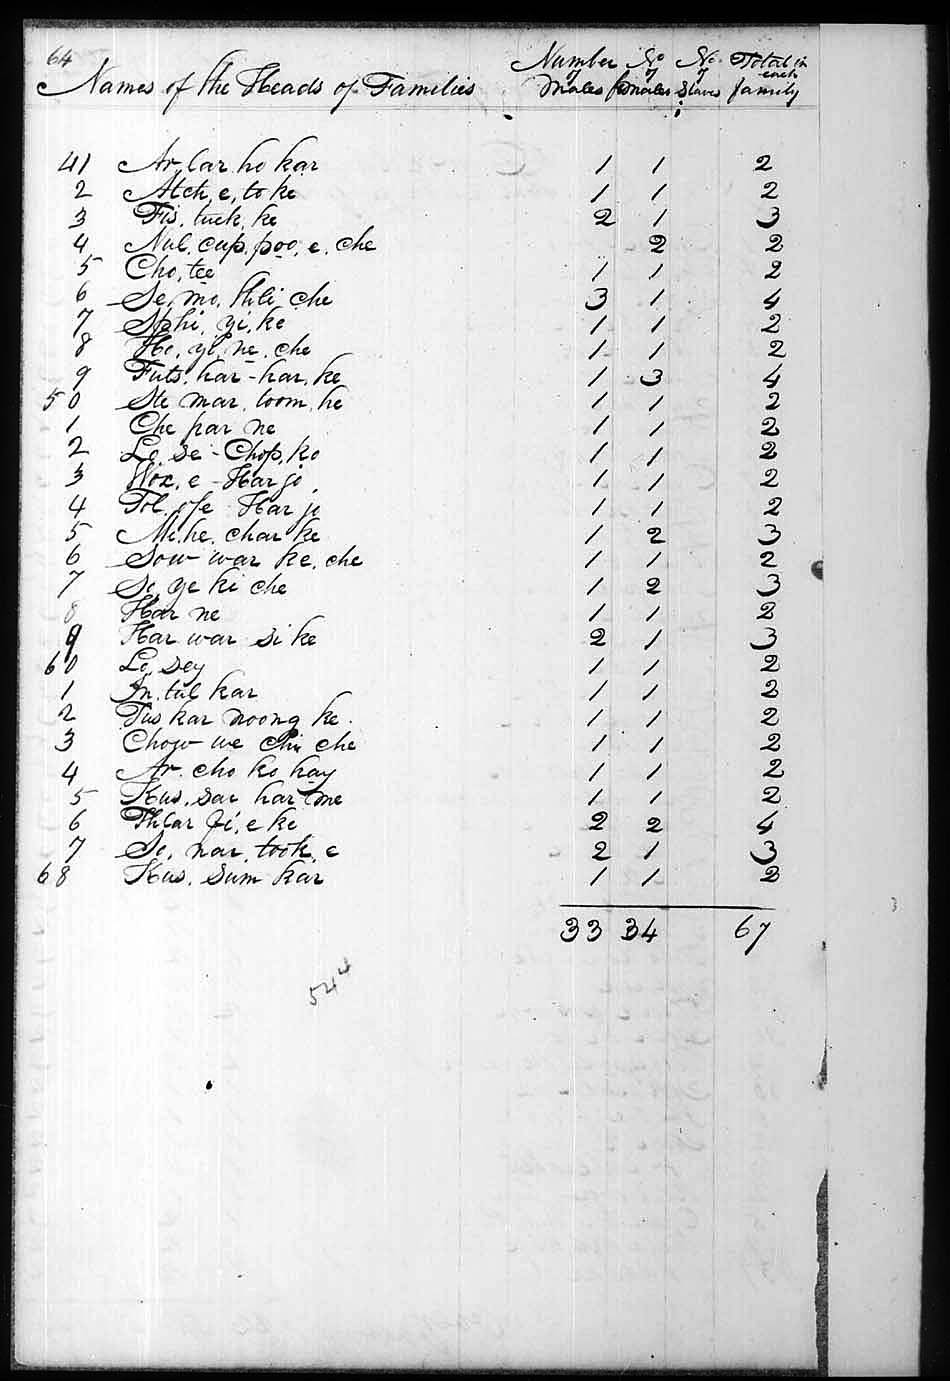 64
Names of the Heads of Families Number of Males No of females No of Slaves Total in each family
41 Ar, lar ho kar 1 1 2
2 Atch, e, to ke 1 1 2
3 Fis, tuck, ke 2 1 3
4 Nul. cup, poo, e, che 2 2
5 Cho, tee 1 1 2
6 Se, mo, thli che 3 1 4
7 yi, ke 1 1 2
8 Ho, yi, ne, che 1 1 2
9 Futs, har - har, ke 1 3 4
50 Ste mar, toom, he 1 1 2
1 Che par ne 1 1 2
2 Lo, se - Chop, ko 1 1 2
3 Wox, e - Harjo 1 1 2
4 Tol, ofe Harjo 1 1 2
5 Mi, he, char ke 1 2 3
6 Sow war ke, che 1 1 2
7 So, ye ki che 1 2 3
8 Har ne 1 1 2
9 Har war si ke 2 1 3
60 Lo, sey 1 1 2
1 In, tul kar 1 1 2
2 Tus kar noong ke 1 1 2
3 Chow we che 1 1 2
4 Ar cho ko hay 1 1 2
5 Kus, sar har me 1 1 2
6 Thlar fi, e ke 2 2 4
7 So, nar, took, e 2 1 3
68 Kus, Sum kar 1 1 2
33 34 67
544